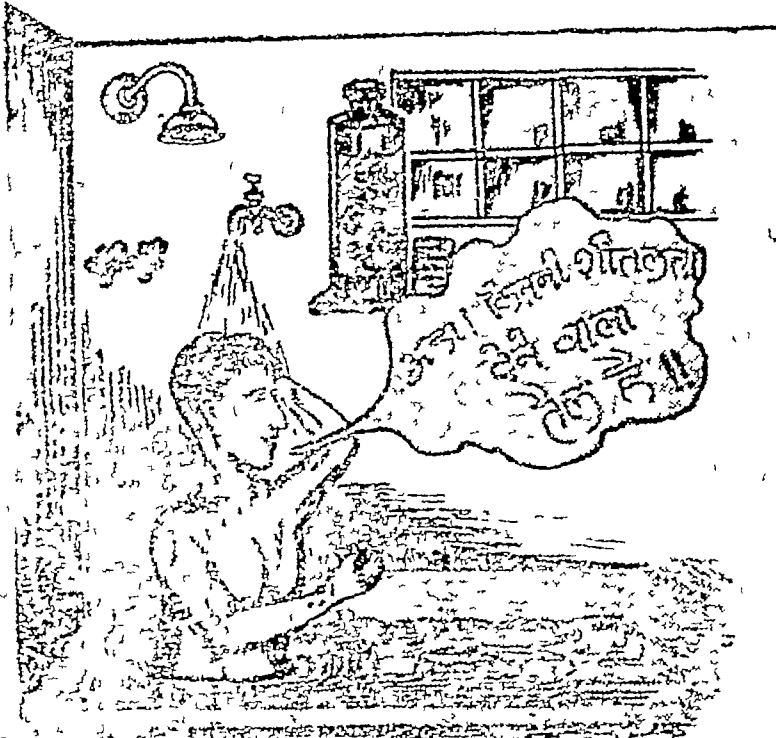 कितनी शीतलता
देने वाला
तेल है !!